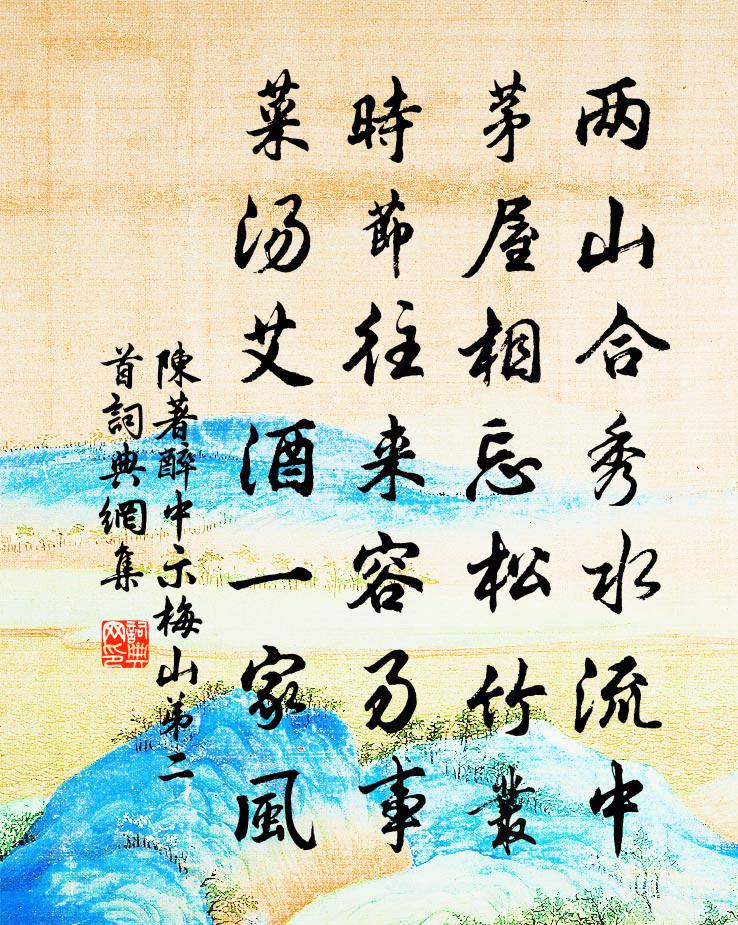 两山合秀水流中
茅屋相忘松竹叢
時節往来容易事
菜汤艾酒一家風
陳著醉中示梅山弟二
首詞典網集
詞典网印